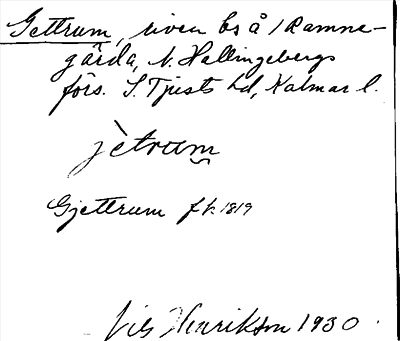 Gettrum, riven bs å / Ramne-
gärda, N. Hallingebergs
förs. S. Tjusts hd, Kalmar l.
jètrum
Gjettrum fk 1819
Nils Henrikson 1930